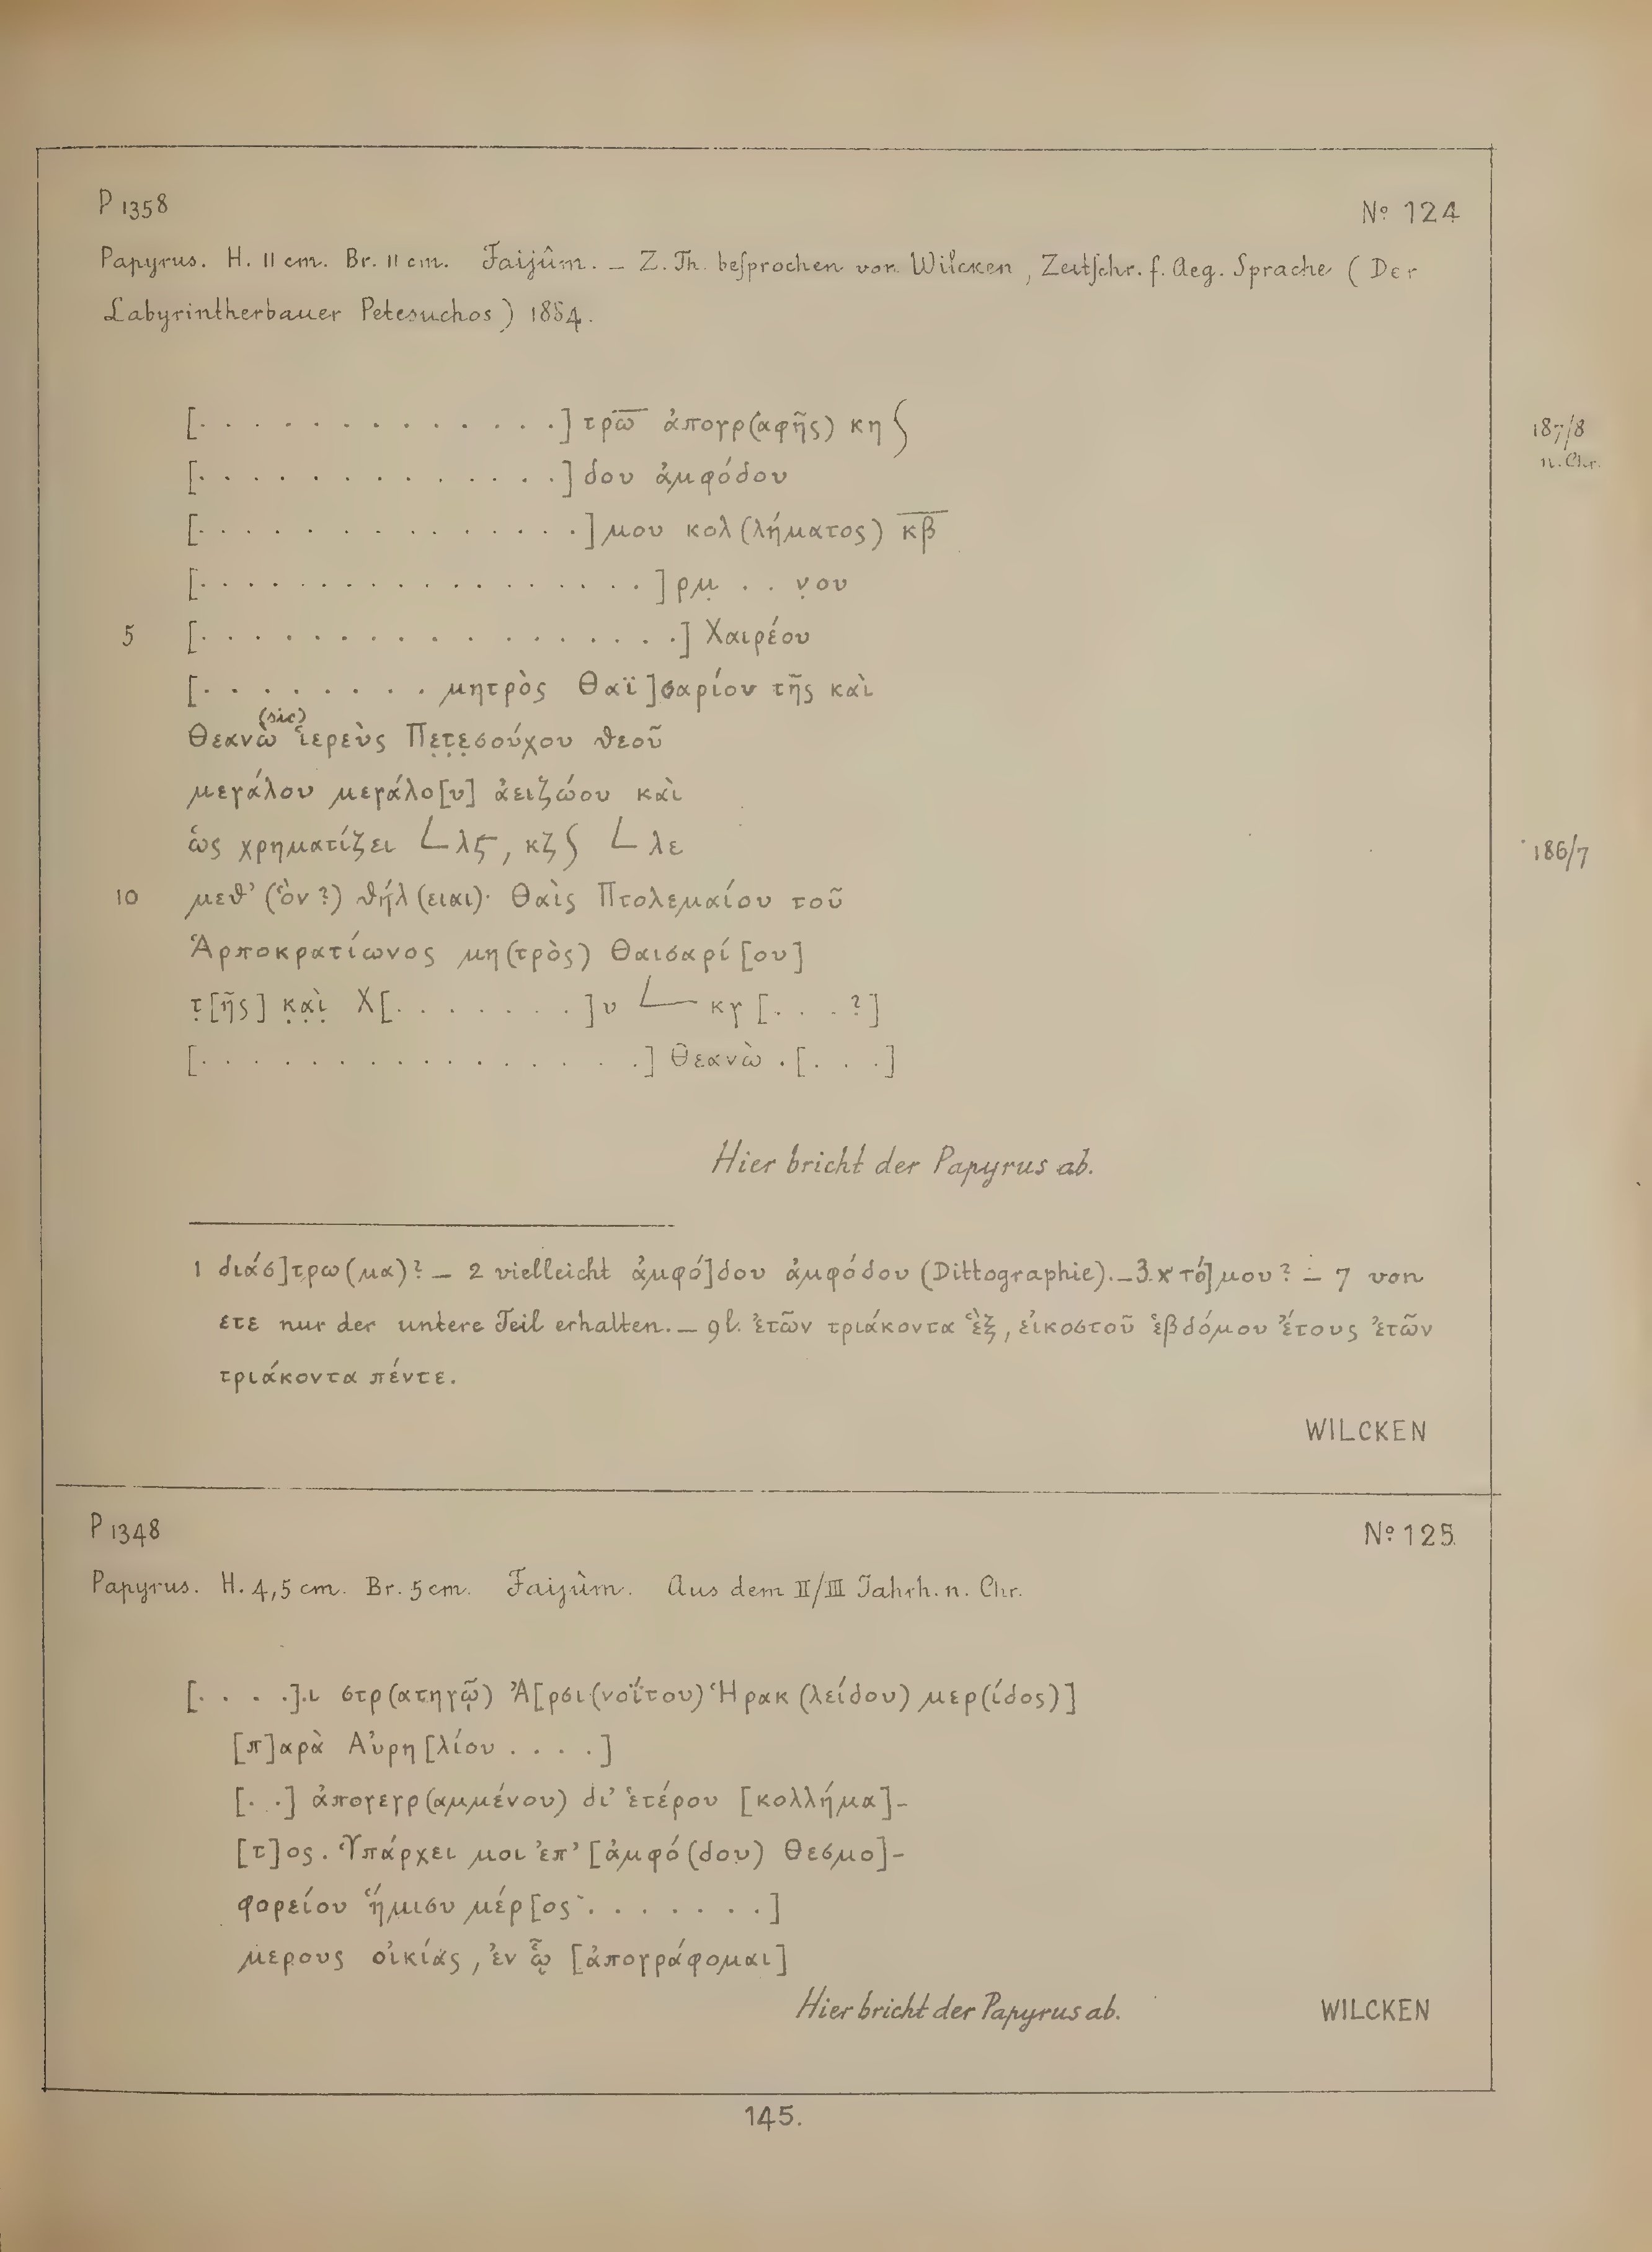 P 1358
Nº 124
Papyrus. H. 11 cm. Br. 11 cm. Faijûm. — Z. Th. besprochen von Wilcken, Zeitschr. f. Aeg. Sprache (Der
Labyrintherbauer Petesuchos) 1884.
[· · · · · · · · · · · · · ·] τρω̅ ἀπογρ(αφῆς) κη ʃ
187/8
n. Chr.
[· · · · · · · · · · · · · ·] δου ἀμφόδου
[· · · · · · · · · · · · · · ·] μου κολ(λήματος) κ̅β̅
[· · · · · · · · · · · · · · · · · ·] ρμ̣ . . ν̣ου
5 [· · · · · · · · · · · · · · · · · ·] Χαιρέου
[· · · · · · · · · μητρὸς Θαϊ]σαρίου τῆς καὶ
(sic)
Θεανὼ ἱερεὺς Πε̣τ̣ε̣σούχου θεοῦ
μεγάλου μεγάλο[υ] ἀειζώου καὶ
ὡς χρηματίζει L λϛ, κζ ʃ L λε
186/7
10 μεθ' (ὃν?) θήλ(ειαι)· Θαὶς Πτολεμαίου τοῦ
Ἁρποκρατίωνος μη(τρὸς) Θαισαρί[ου]
τ̣[ῆς] κ̣α̣ὶ̣ Χ[. . . . . . . .]υ L κγ [. . . ?]
[· · · · · · · · · · · · · · · · ·] Θεανὼ .[. . .]
Hier bricht der Papyrus ab.
1 διάσ]τρω(μα)? — 2 vielleicht ἀμφό]δου ἀμφόδου (Dittographie). — 3. τό]μου? — 7 von
ετε nur der untere Teil erhalten. — 9 l. ἐτῶν τριάκοντα ἓξ, εἰκοστοῦ ἑβδόμου ἔτους ἐτῶν
τριάκοντα πέντε.
WILCKEN
P 1348
Nº 125
Papyrus. H. 4,5 cm. Br. 5 cm. Faijûm. Aus dem II/III Jahrh. n. Chr.
[· · · ·].ι στρ(ατηγῷ) Ἀ[ρσι(νοΐτου) Ἡρακ(λείδου) μερ(ίδος)]
[π]αρὰ Αὐρη[λίου . . . .]
[. .] ἀπογεγρ(αμμένου) δι' ἑτέρου [κολλήμα]-
[τ]ος. Ὑπάρχει μοι ἐπ' [ἀμφό(δου) Θεσμο]-
φορείου ἥμισυ μέρ[ος . . . . . . .]
μερους οἰκίας, ἐν ᾧ [ἀπογράφομαι]
Hier bricht der Papyrus ab.
WILCKEN
145.